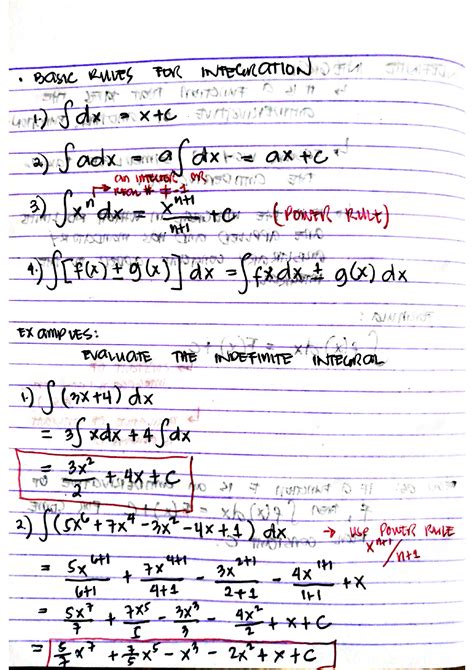 • BASIC RULES FOR INTEGRATION
1.) ∫ dx = x + c
2) ∫ a dx = a ∫ dx = ax + c
an integer or
real # ≠ -1
3) ∫ xⁿ dx = xⁿ⁺¹/n+1 + c (POWER RULE)
4.) ∫ [f(x) ± g(x)] dx = ∫ fx dx ± g(x) dx
EXAMPLES:
EVALUATE THE INDEFINITE INTEGRAL
1.) ∫ (3x+4) dx
= 3 ∫ xdx + 4 ∫ dx
= 3x²/2 + 4x + C
2) ∫ (5x⁶ + 7x⁴ - 3x² - 4x + 1) dx → USE POWER RULE
xⁿ⁺¹/n+1
= 5x⁶⁺¹/6+1 + 7x⁴⁺¹/4+1 - 3x²⁺¹/2+1 - 4x¹⁺¹/1+1 + x
= 5x⁷/7 + 7x⁵/5 - 3x³/3 - 4x²/2 + x + C
= 5/7 x⁷ + 7/5 x⁵ - x³ - 2x² + x + C